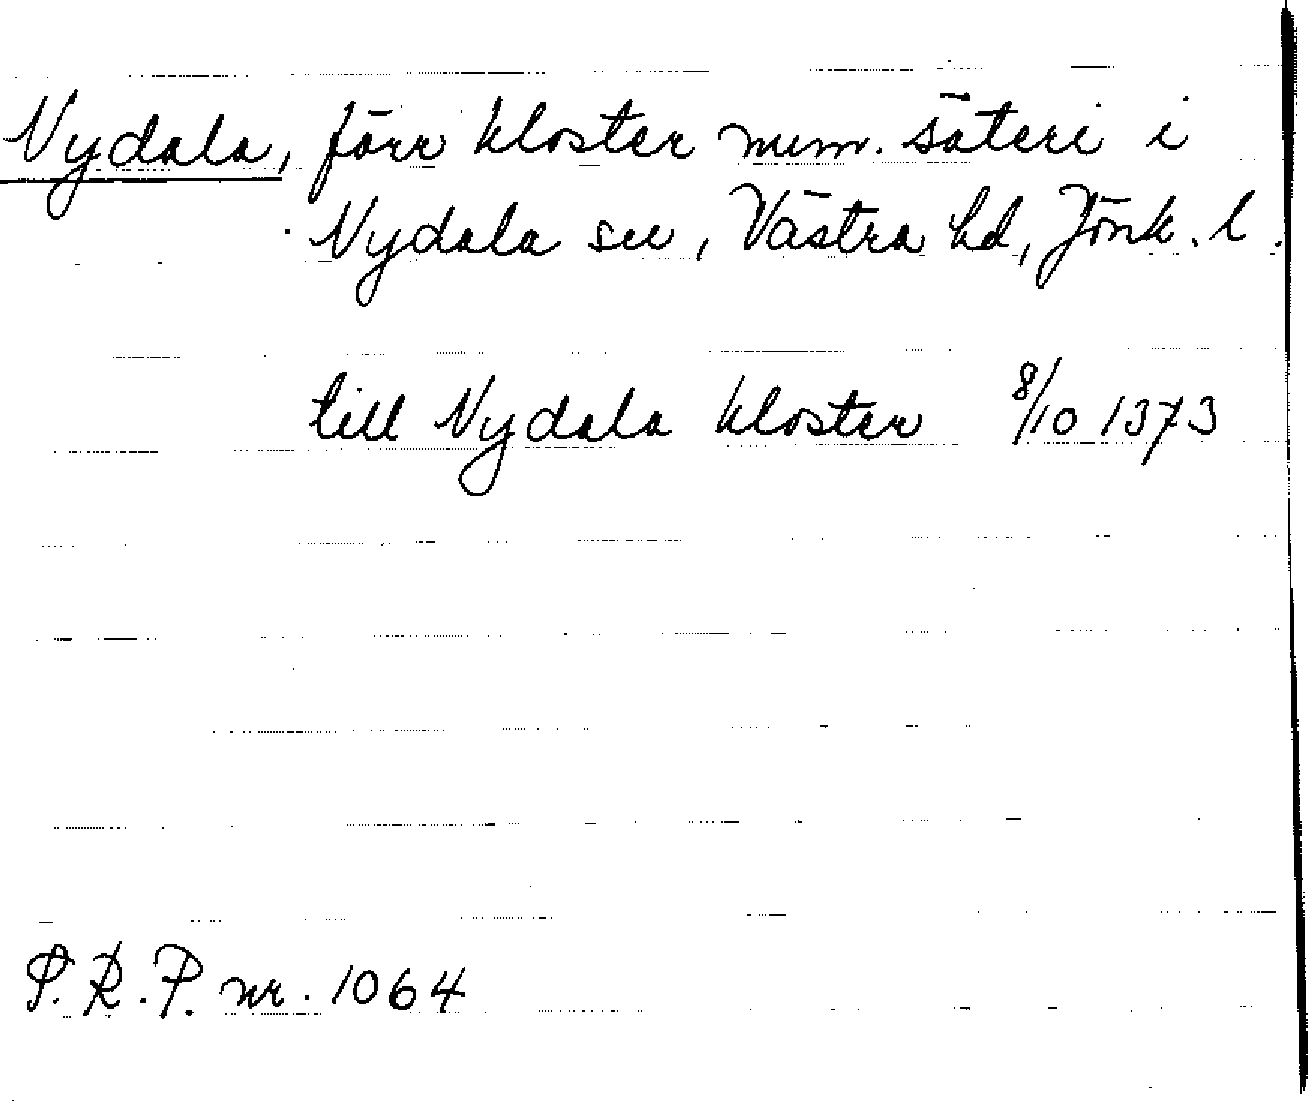 Nydala, förr kloster num. säteri i
Nydala sn, Västra hd, Jönk. l.
till Nydala kloster 8/10 1373
S.R.P. nr. 1064